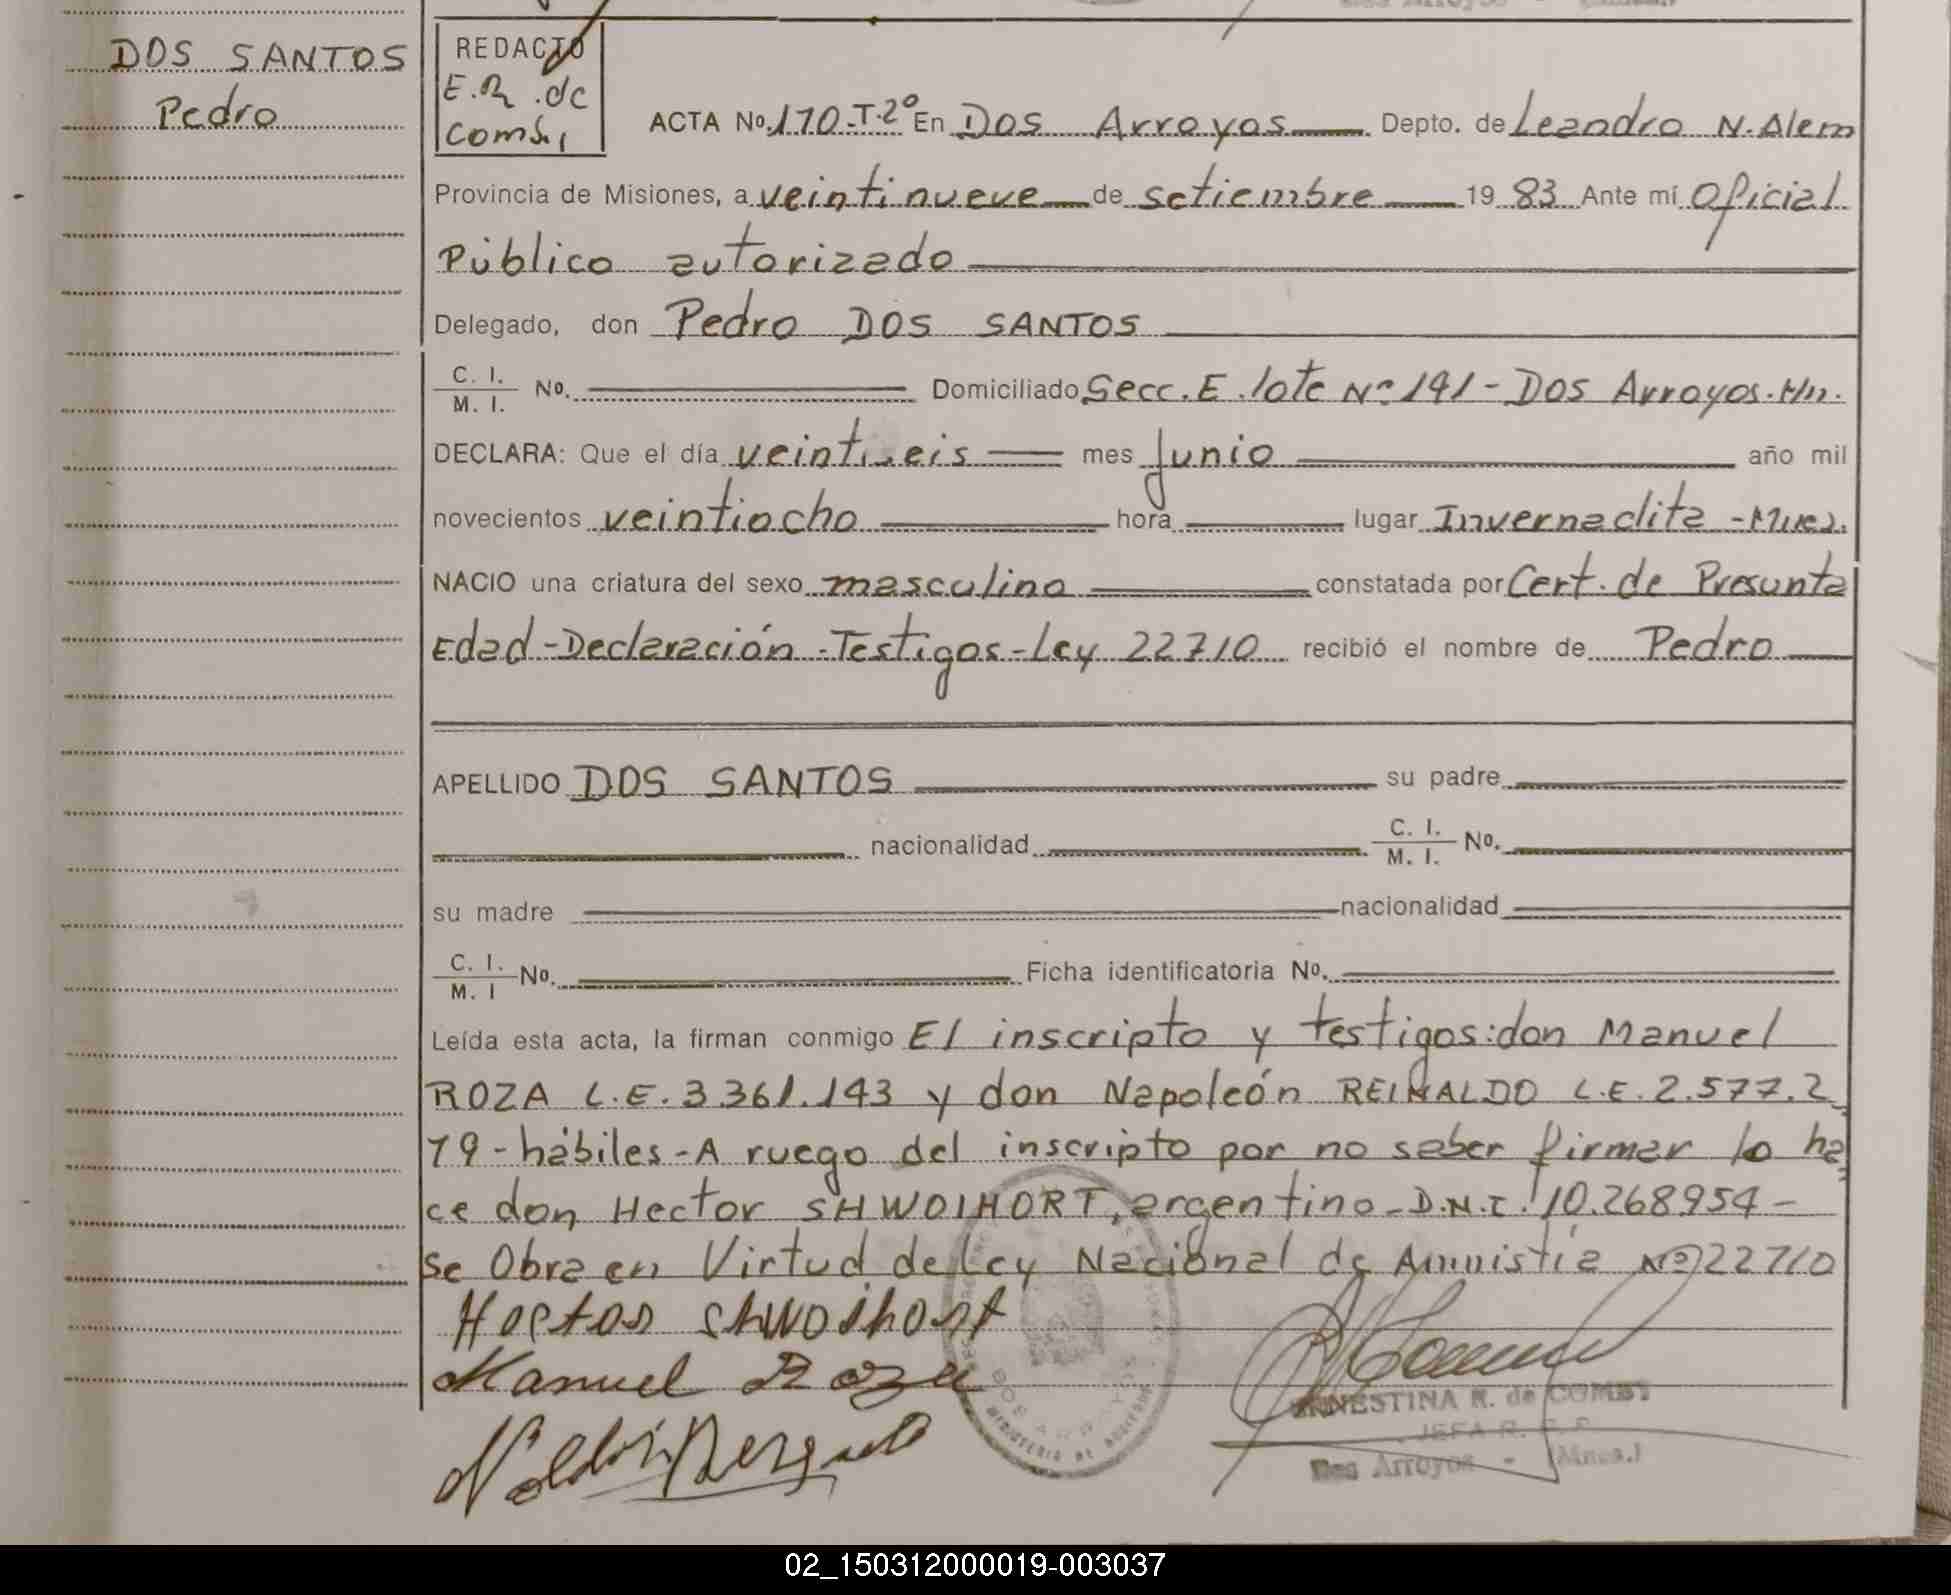 DOS SANTOS
Pedro
REDACTO
E.R. de
Coms.
ACTA No. 170-T-2º En Dos Arroyos Depto. de Leandro N. Alem
Provincia de Misiones, a veintinueve de setiembre 1983 Ante mí Oficial
Público autorizado
Delegado, don Pedro DOS SANTOS
C. I.
M. I. No. Domiciliado Secc. E. lote Nº 191 - Dos Arroyos.
DECLARA: Que el día veintiseis mes Junio año mil
novecientos veintiocho hora lugar Invernadita - Mnes.
NACIO una criatura del sexo masculino constatada por Cert. de Presunta
Edad - Declaración - Testigos - Ley 22710 recibió el nombre de Pedro
APELLIDO DOS SANTOS su padre
nacionalidad C. I.
M. I. No.
su madre nacionalidad
C. I.
M. I No. Ficha identificatoria No.
Leída esta acta, la firman conmigo El inscripto y testigos: don Manuel
ROZA L.E. 3.361.143 y don Napoleón REINALDO L.E. 2.577.2
79 - hábiles - A ruego del inscripto por no saber firmar lo ha
ce don Hector SHWOIHORT, argentino - D.N.I. 10.268954 -
se Obra en Virtud de Ley Nacional de Amnistía Nº 22710
Hector Shwoihort
Manuel Roza
ERNESTINA R. de COMSI
JEFA R.
Dos Arroyos - (Mnes.)
DOS ARROYOS
MINISTERIO DE GOBIERNO
02_150312000019-003037